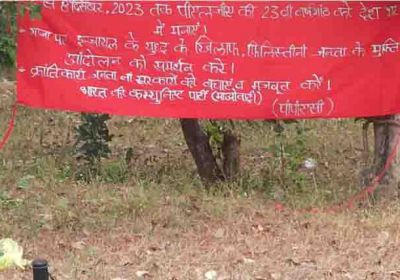 8 दिसम्बर, 2023 तक पीएलजीए की 23वीं वर्षगांठ को देश भर
में मनाएँ।
गाजा पर इजरायल के युद्ध के खिलाफ, फिलिस्तीनी जनता के मुक्ति
आंदोलन को समर्थन करें।
क्रांतिकारी जनता की सरकारों को बचाएंव मजबूत करें।
भारत की कम्युनिस्ट पार्टी (माओवादी)